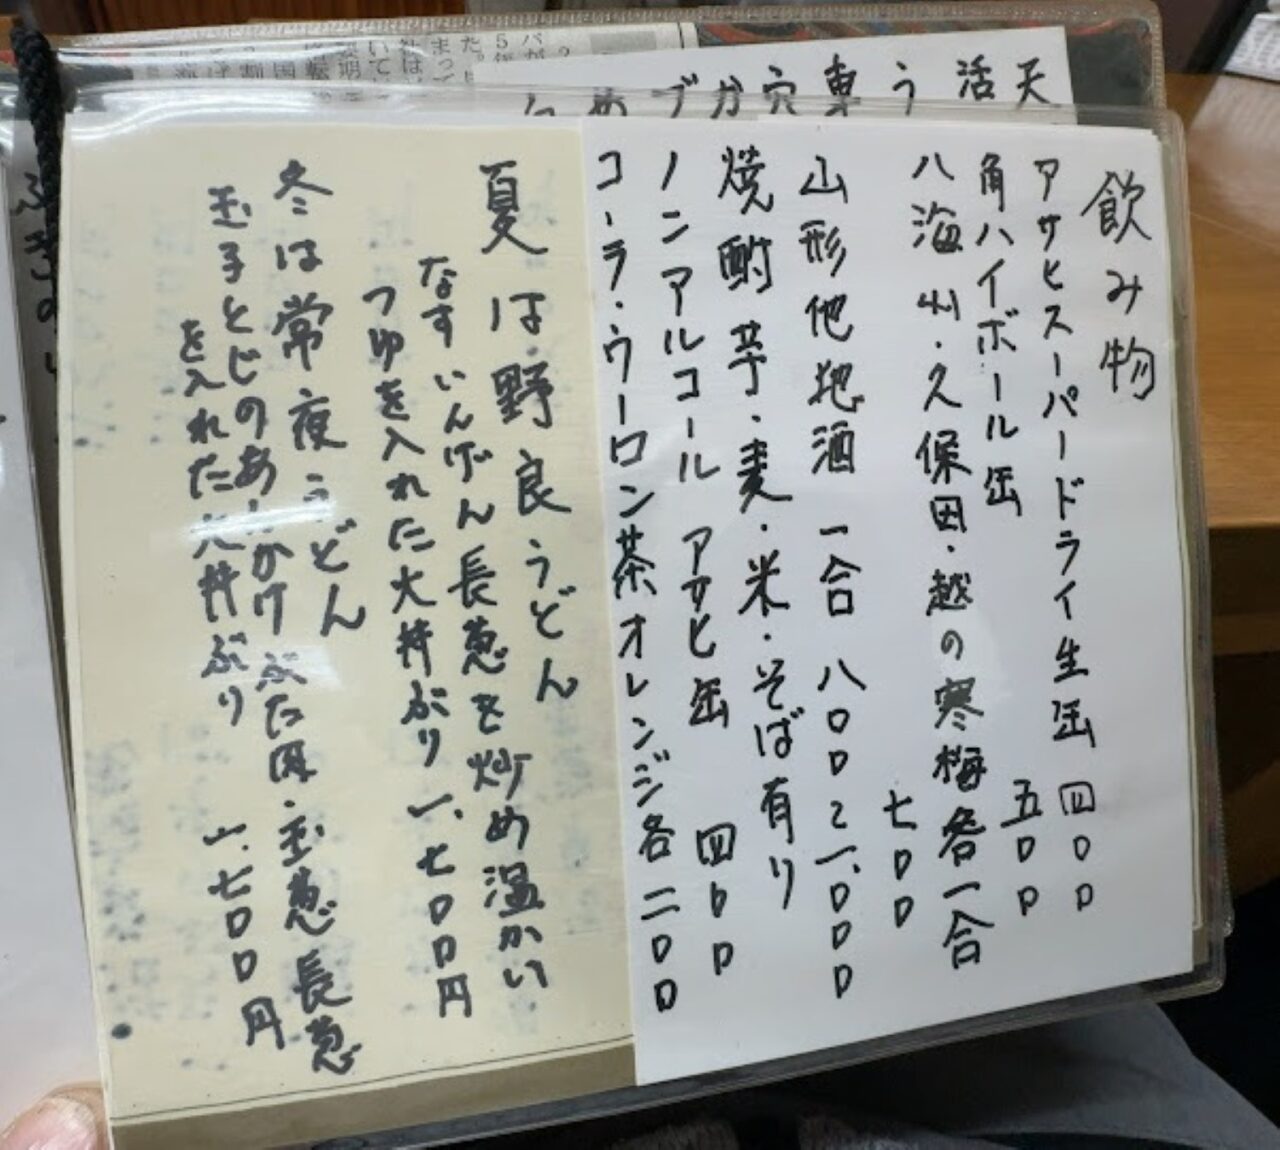 天
活
う
車
穴
か
ブ
め
飲み物
アサヒスーパードライ生缶 四〇〇
角ハイボール缶 五〇〇
八海山・久保田・越の寒梅各一合
七〇〇
山形他地酒 一合 八〇〇〜一、〇〇〇
焼酎芋・麦・米・そば有り
ノンアルコール アサヒ缶 四〇〇
コーラ・ウーロン茶オレンジ各二〇〇
夏は野良うどん
なすいんげん長葱を炒め温かい
つゆを入れた大丼ぶり 一、七〇〇円
冬は常夜うどん
玉子とじのあんかけ ぶた肉・玉葱長葱
を入れた大丼ぶり 一、七〇〇円